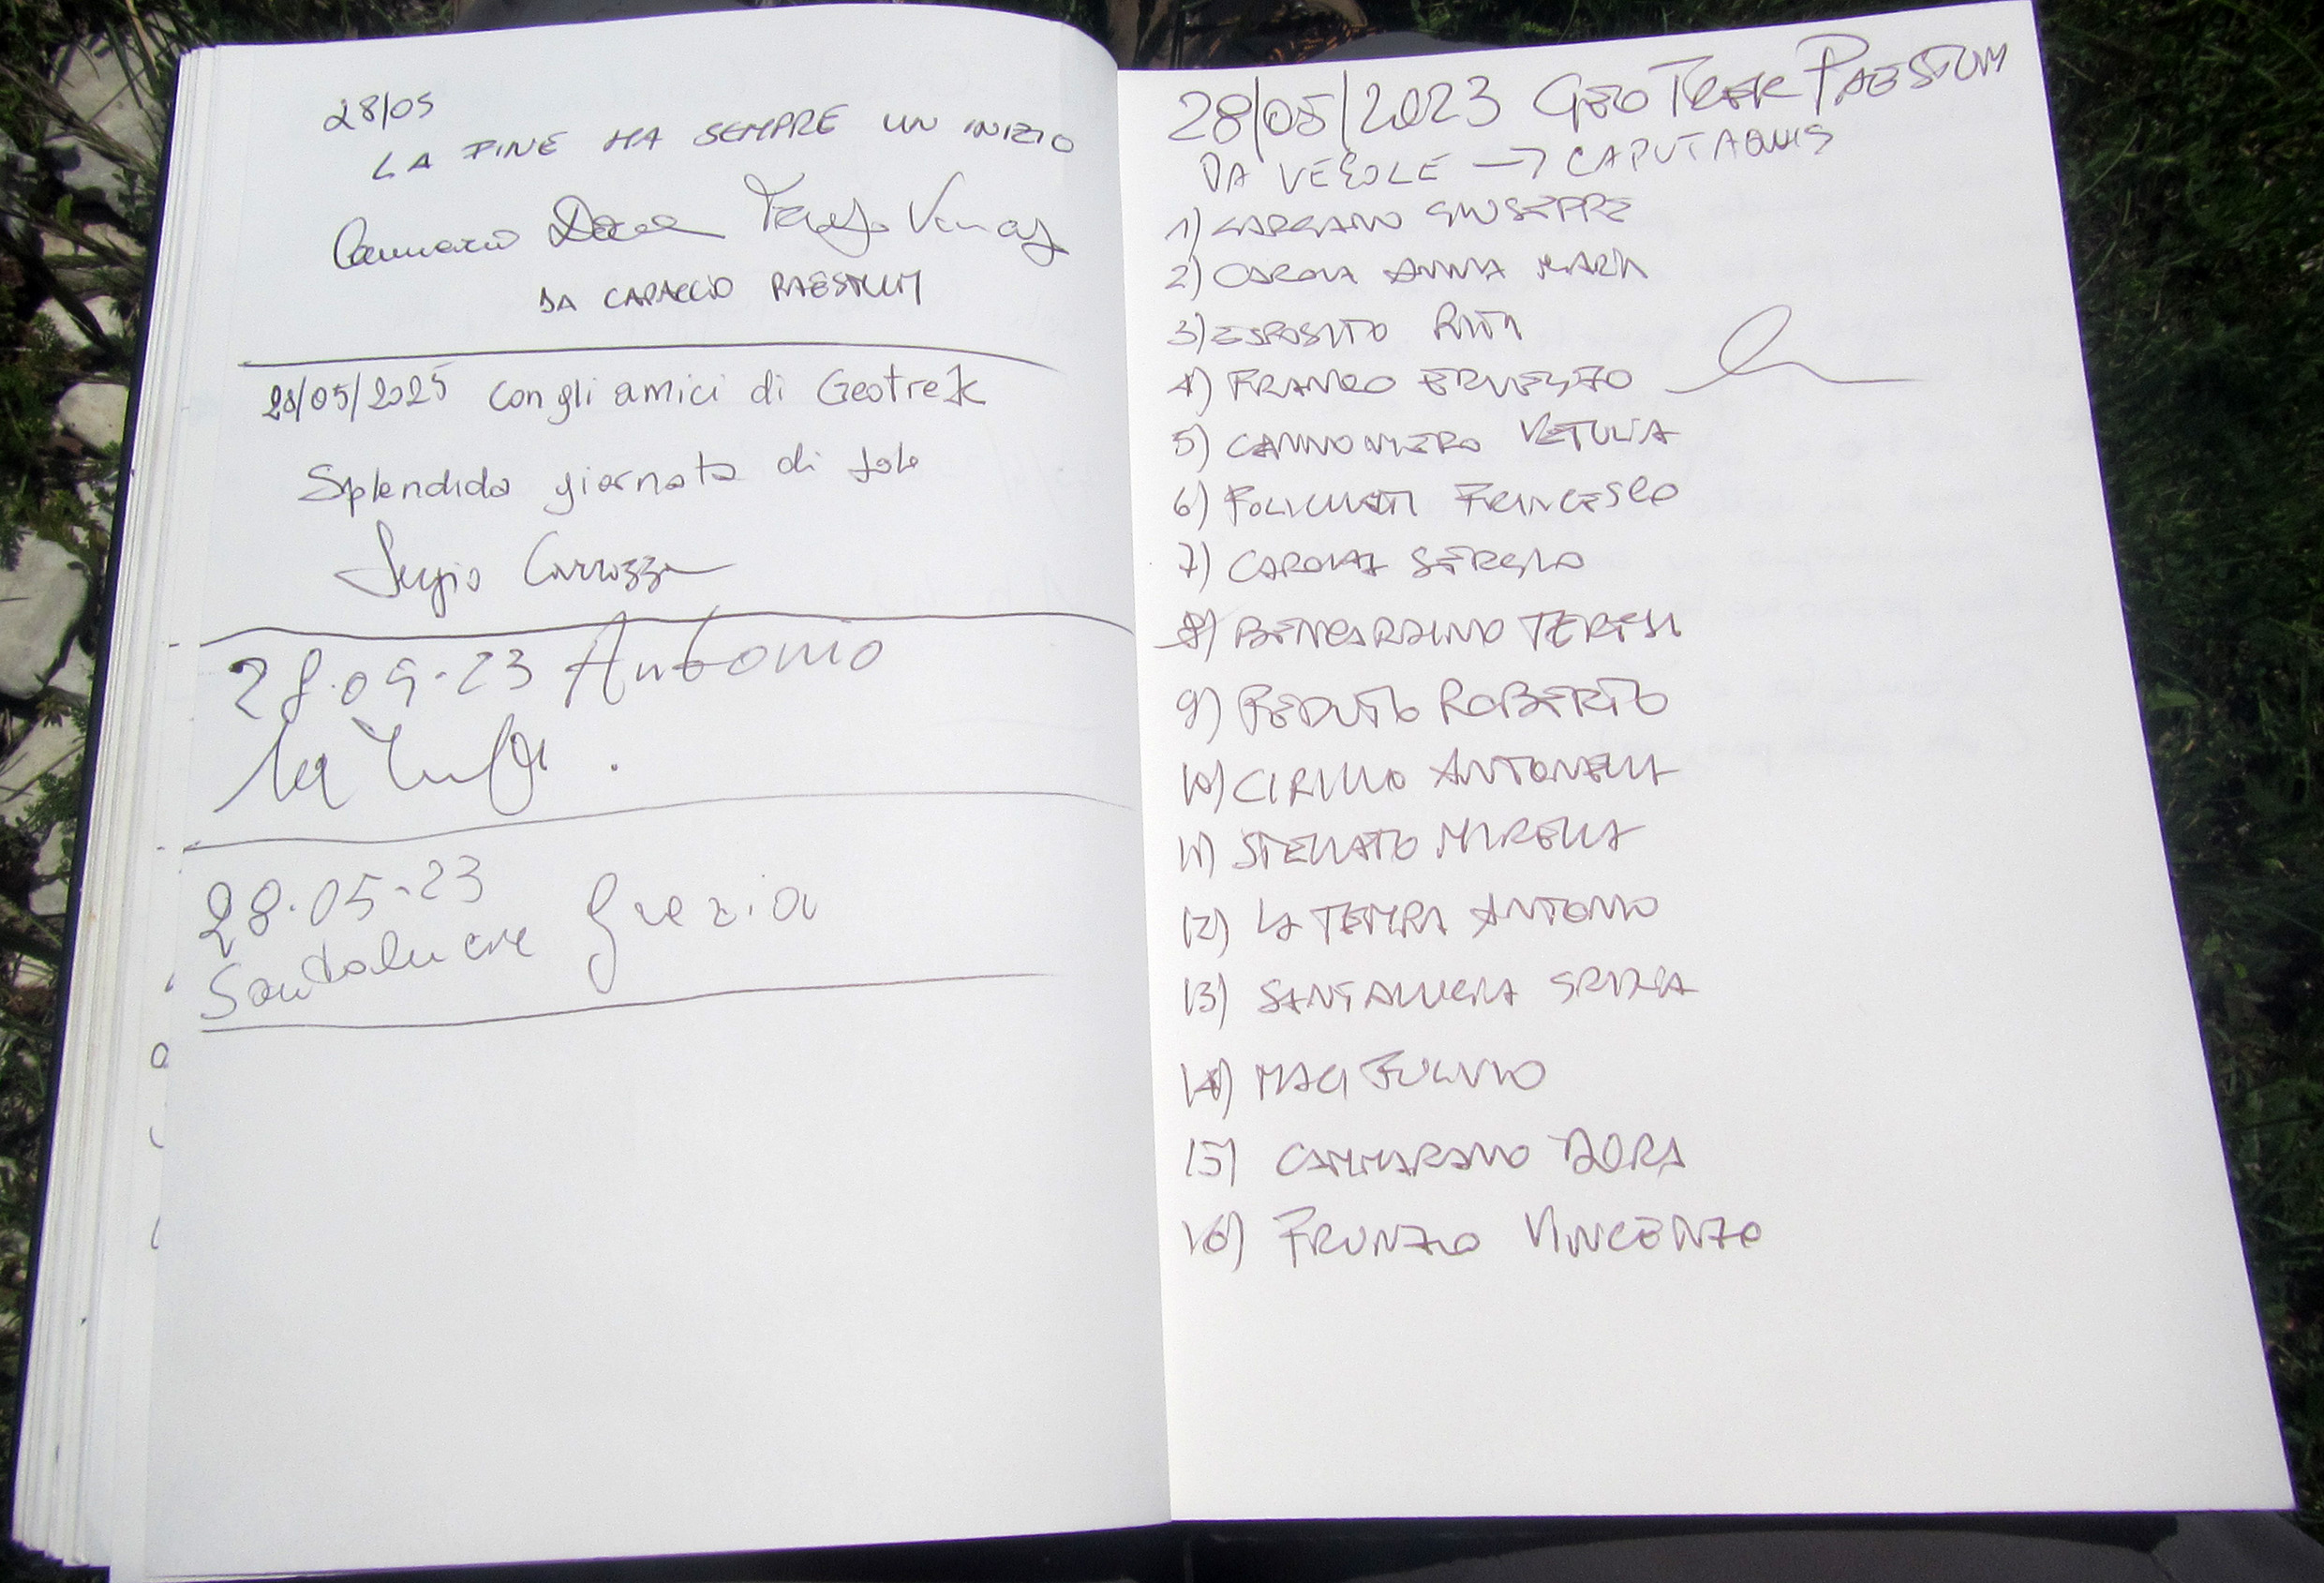 28/05
LA FINE HA SEMPRE UN INIZIO
Cammarano Dora
DA CAPACCIO PAESTUM
28/05/2023 Con gli amici di Geotrek
Splendida giornata di sole
Sergio Carrozza
28.05.23 Antonio
La
28.05-23
Santalucia Grazia
28/05/2023 GEO TREK PAESTUM
DA VESOLE → CAPUTAQUIS
1) GARGANO GIUSEPPE
2) CAROLA ANNA MARIA
3) ESPOSITO RITA
4) FRANCO ERNESTO
5) CANNONIERO VETULIA
6) FRANCESCO
7) SERGIO
8) BENCARDINO TERESA
9) PEDUTO ROBERTO
10) CIRILLO ANTONELLA
11) STELLATO MIRELLA
12) LA TEMPA ANTONIO
13) SANTALUCIA GRAZIA
14) MACI FULVIO
15) CAMMARANO DORA
16) FRUNZIO VINCENZO